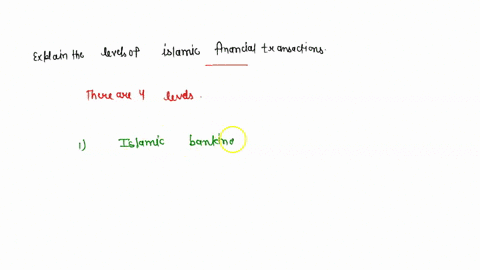 Explain the levels of islamic financial transactions.
There are 4 levels.
1) Islamic banking